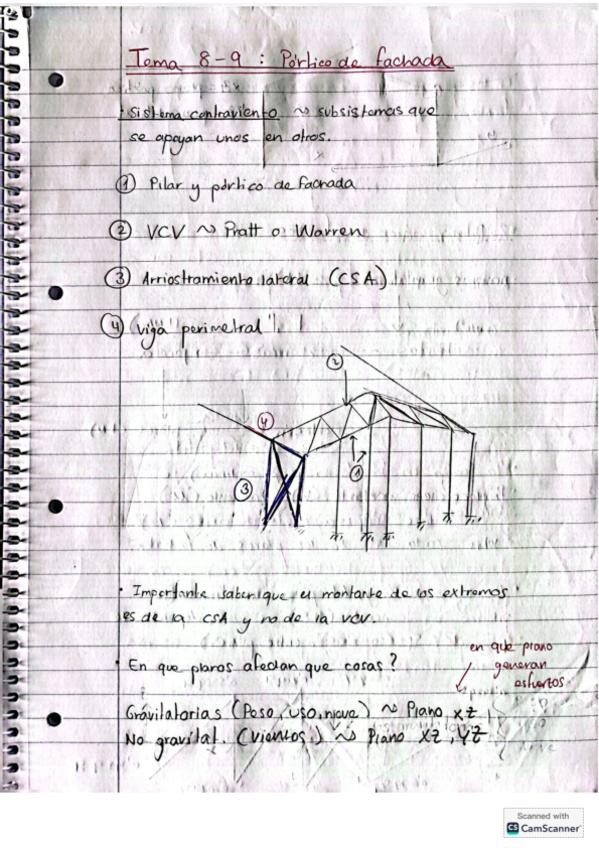 Tema 8-9 : Pórtico de fachada
· Sistema contraviento ~ subsistemas que
se apoyan unos en otros.
① Pilar y pórtico de fachada
② VCV ~ Pratt o Warren
③ Arriostramiento lateral (CSA)
④ viga perimetral
②
④
①
③
· Importante saber que el montante de los extremos
es de la CSA y no de la VCV.
en que plano
generan
esfuertos.
· En que planos afectan que cosas?
Gravitatorias (Peso, uso, nieve) ~ Plano XZ
No gravitat. (Vientos) ~ Plano XZ, YZ
Scanned with
CS CamScanner